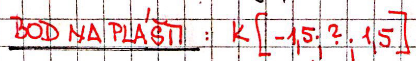 BOD NA PLÁŠTI : K [-1,5; ?; 1,5]